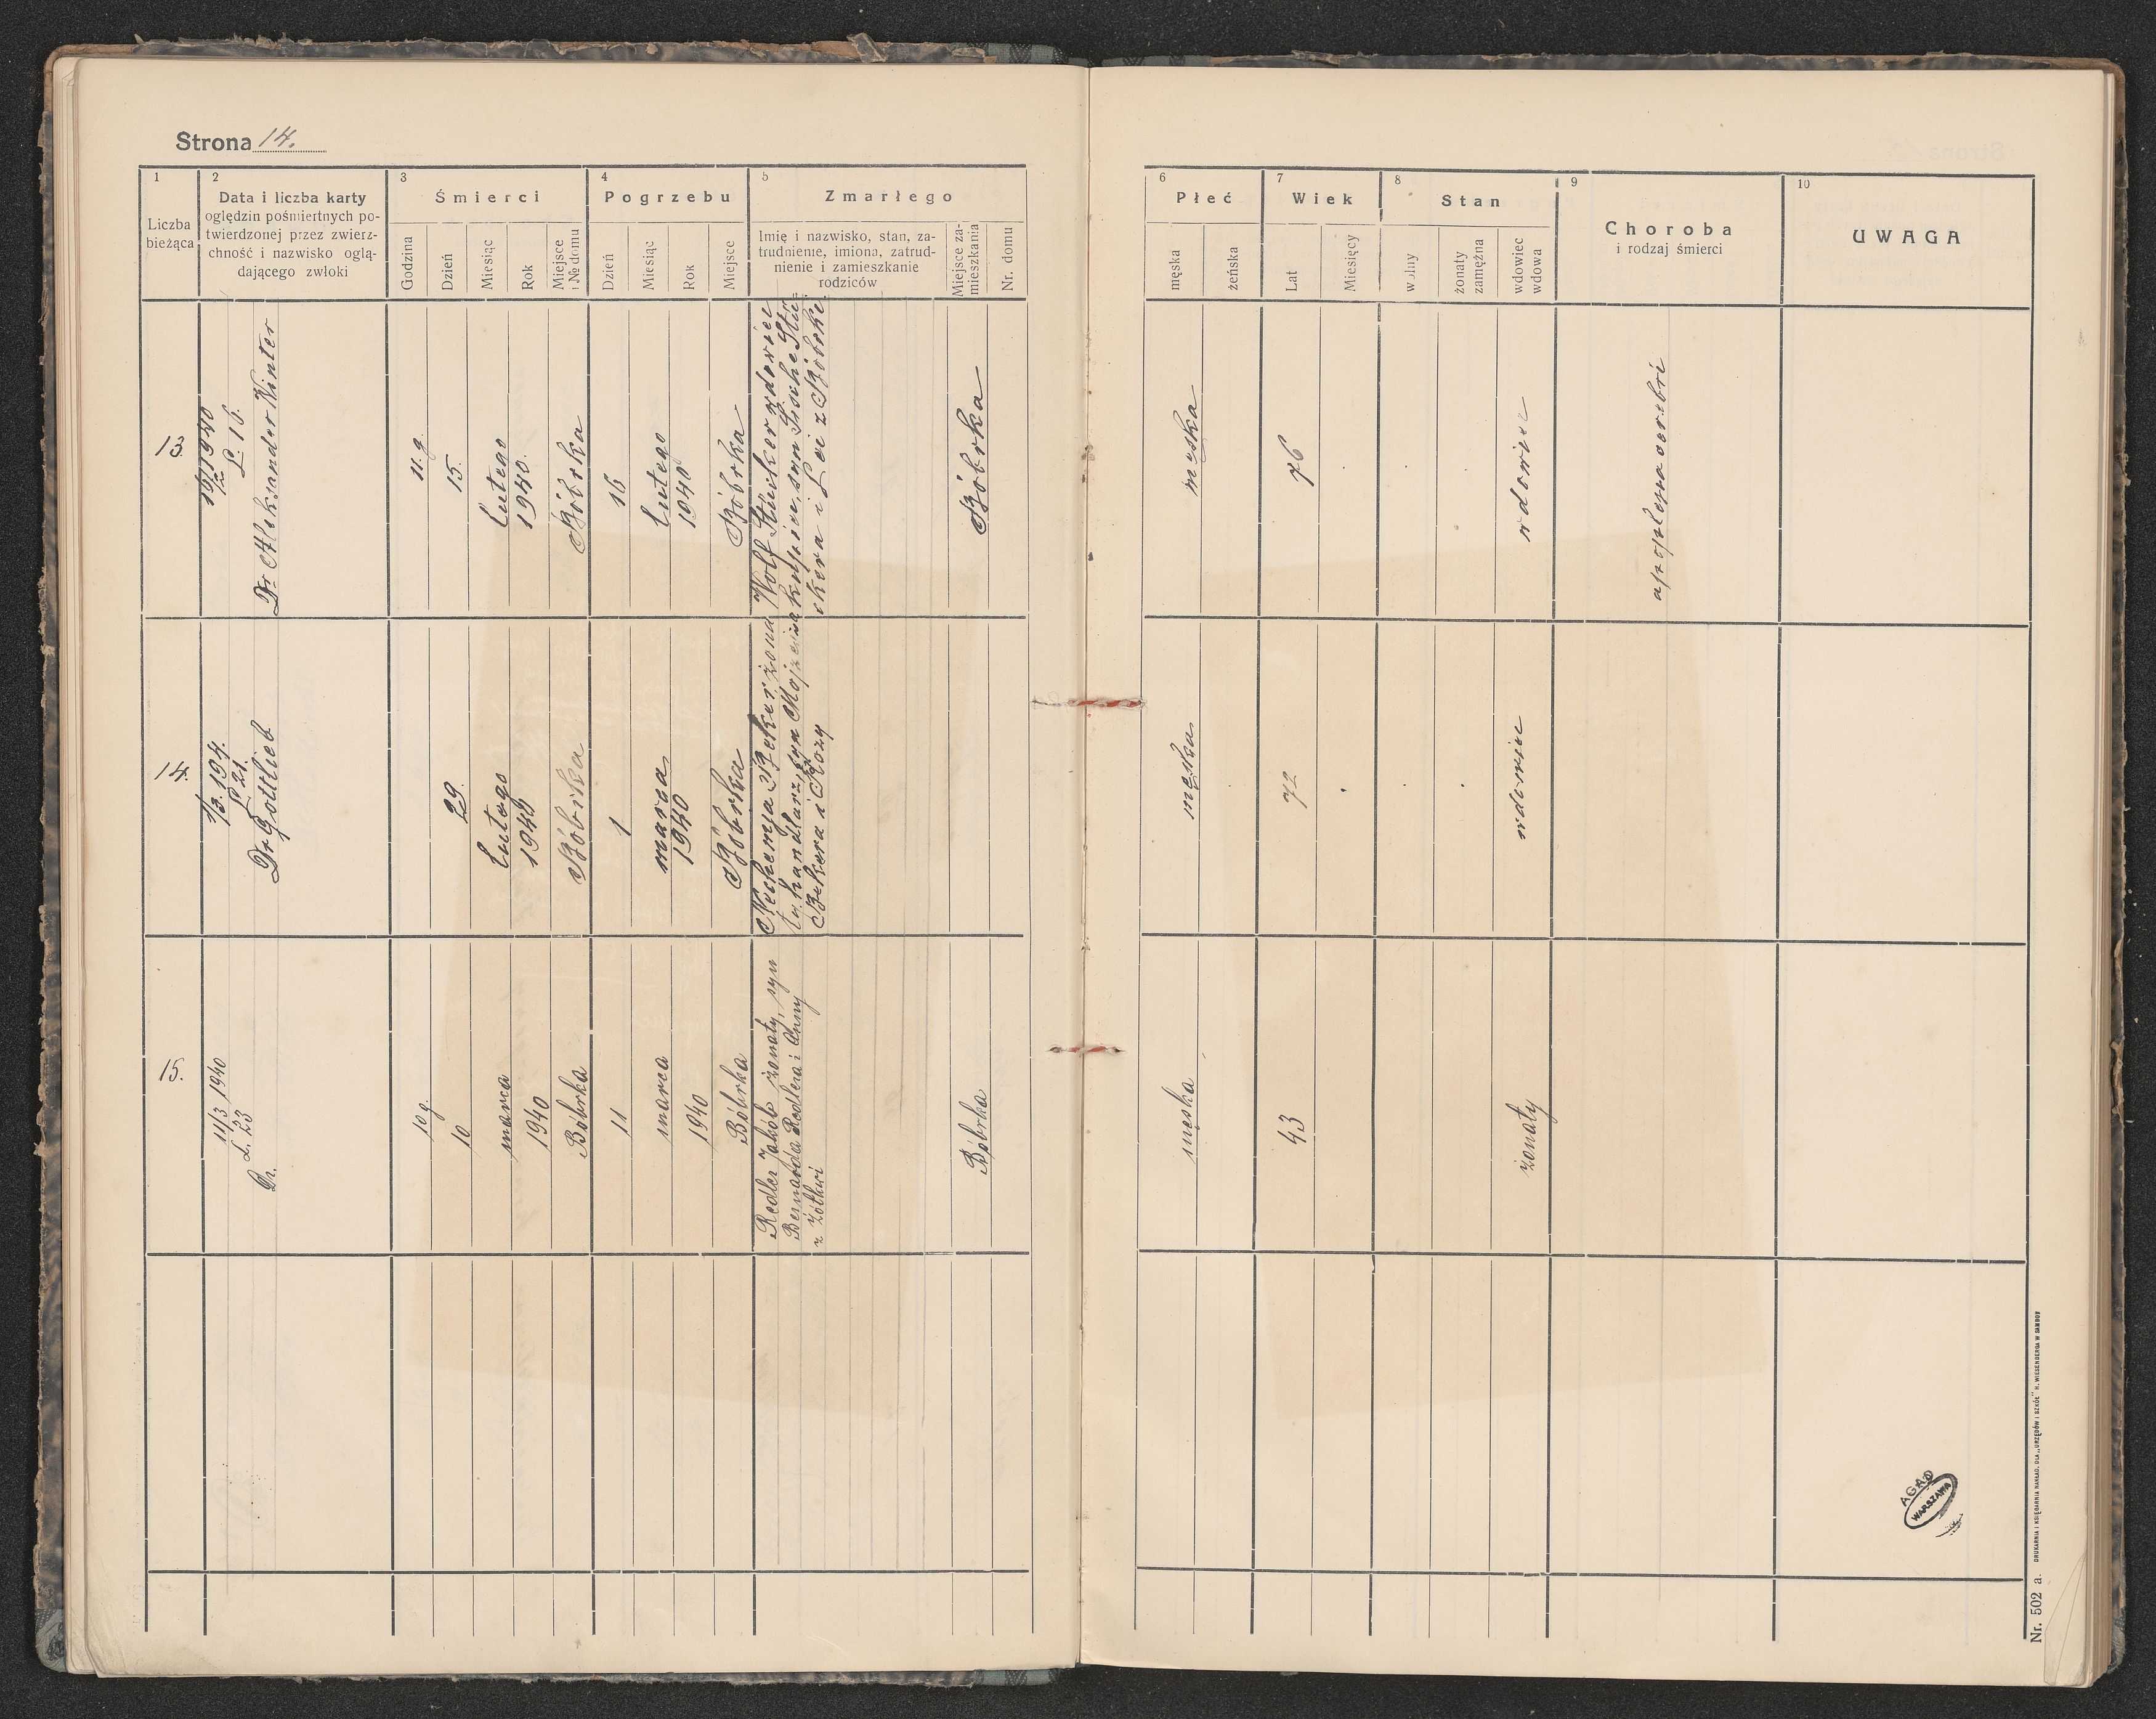 Strona 14.
1
Liczba
bieżąca
2
Data i liczba karty
oględzin pośmiertnych po-
twierdzonej przez zwierz-
chność i nazwisko oglą-
dającego zwłoki
3
Śmierci
Godzina
Dzień
Miesiąc
Rok
Miejsce
i № domu
4
Pogrzebu
Dzień
Miesiąc
Rok
Miejsce
5
Zmarłego
Imię i nazwisko, stan, za-
trudnienie, imiona, zatrud-
nienie i zamieszkanie
rodziców
Miejsce za-
mieszkania
Nr. domu
6
Płeć
męska
żeńska
7
Wiek
Lat
Miesięcy
8
Stan
wolny
żonaty
zamężna
wdowiec
wdowa
9
Choroba
i rodzaj śmierci
10
UWAGA
13.
16/2 1940
L. 16.
Dr Aleksander Winter
11 g.
15.
lutego
1940.
Bóbrka
16
lutego
1940
Bóbrka
Wolf wdowiec
kupiec, syn
i Lei z Bóbrki
Bóbrka
męska
76
wdowiec
apoplexia cerebri
14.
1/3. 194.
L 21.
Dr Gottlieb
29.
lutego
1940
Bóbrka
1
marca
1940
Bóbrka
Nechemja Beker
handlarz, syn
Bekera i Rozy
męska
72
wdowiec
15.
11/3 1940
L. 23
Dr.
10 g.
10
marca
1940
Bóbrka
11
marca
1940
Bóbrka
Redler Jakób żonaty, syn
Bernarda Redlera i Anny
z Żółkwi
Bóbrka
męska
43
żonaty
AGAD
WARSZAWA
Nr. 502 a. DRUKARNIA I KSIĘGARNIA NAKŁAD. DLA „URZĘDÓW I SZKÓŁ" H. WIESENBERGA W SAMBOR